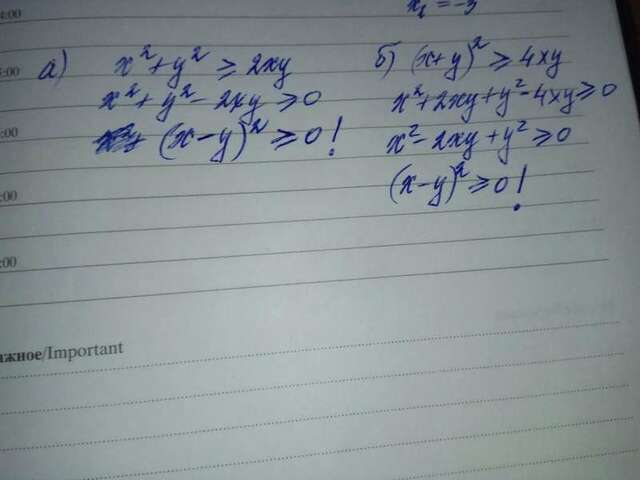 x₁ = -3
а) x² + y² ≥ 2xy
x² + y² - 2xy ≥ 0
(x - y)² ≥ 0!
б) (x + y)² ≥ 4xy
x² + 2xy + y² - 4xy ≥ 0
x² - 2xy + y² ≥ 0
(x - y)² ≥ 0!
4:00
:00
:00
:00
:00
ажное/Important